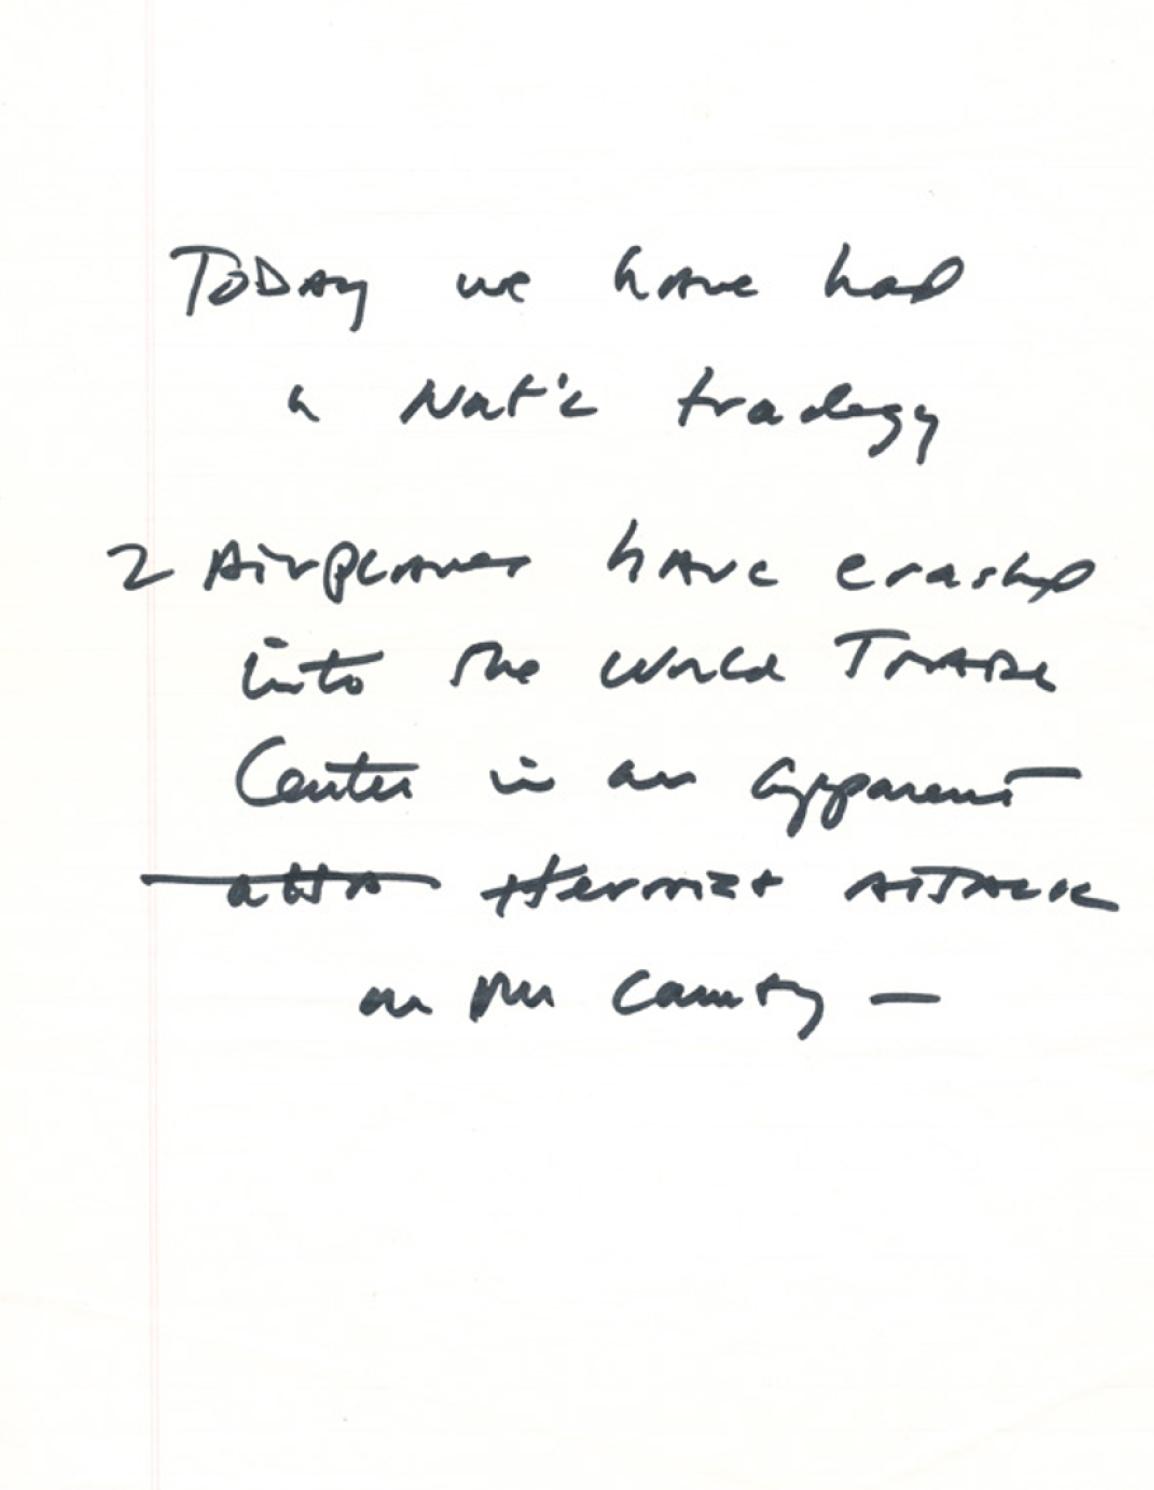 Today we have had
a Nat'l tradegy
2 Airplanes have crashed
into the World Trade
Center in an apparent
atta terrorist attack
on our country —